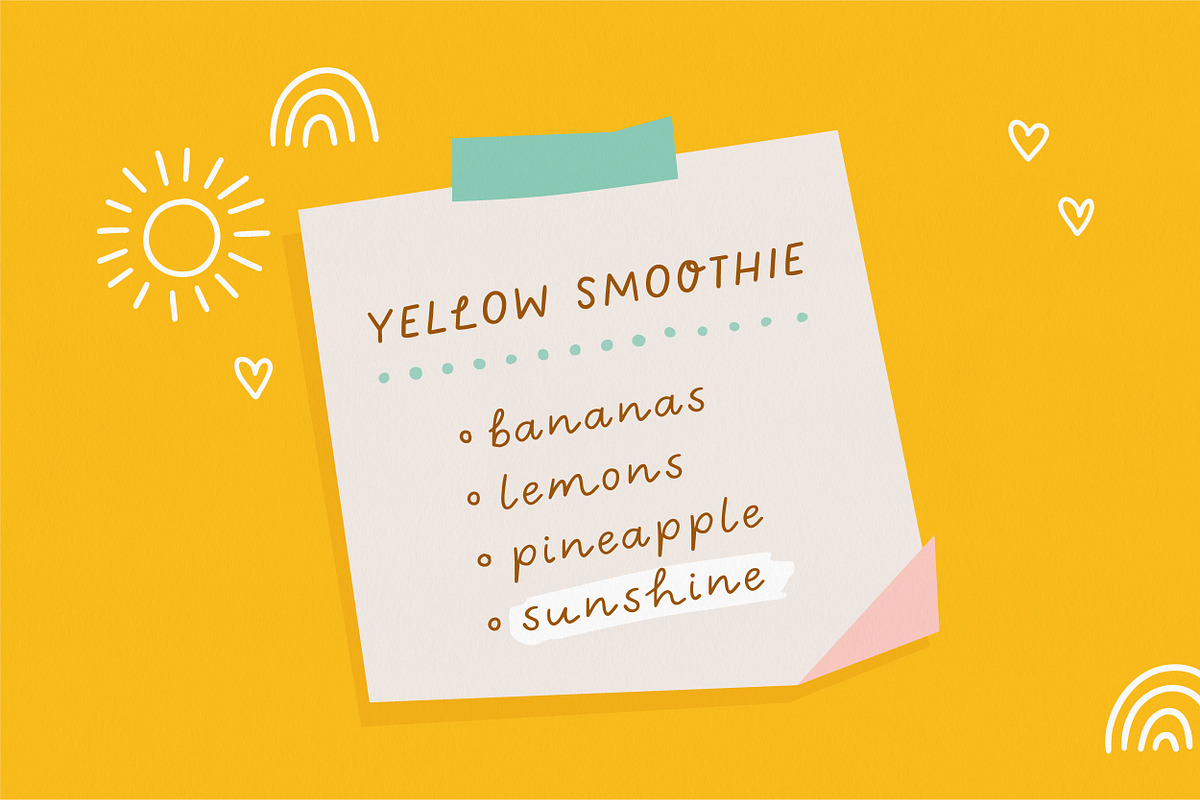 YELLOW SMOOTHIE
bananas
lemons
pineapple
sunshine